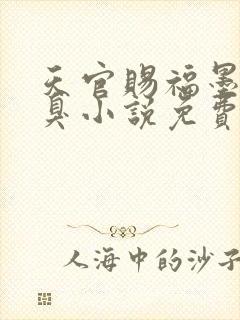 天官賜福墨
臭小說免費
人海中的沙子